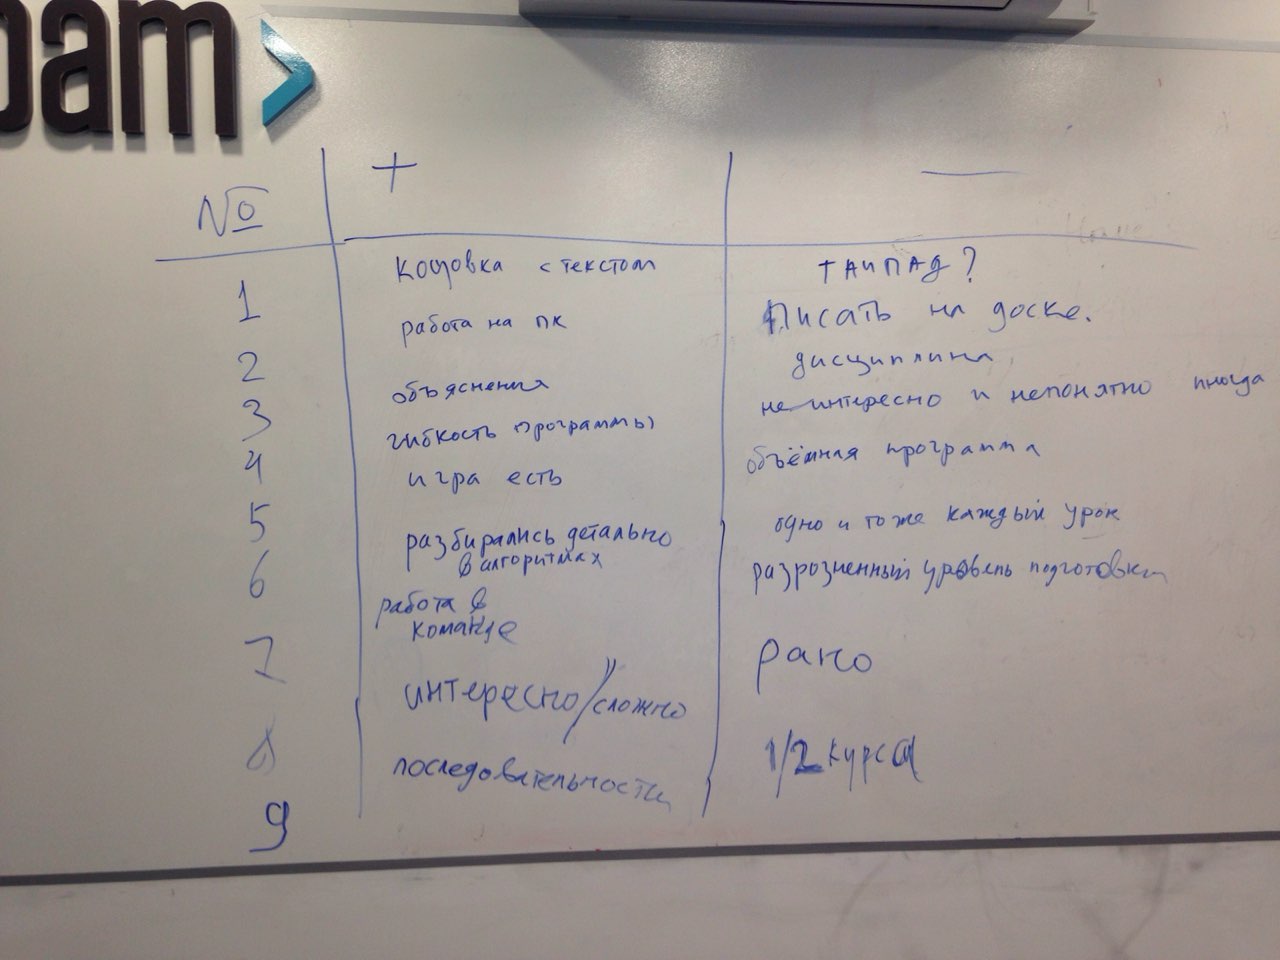 pam
№ + —
1 кодовка с текстом тачпад?
2 работа на пк Писать на доске.
3 объяснения дисциплина
4 гибкость программы не интересно и непонятно иногда
5 игра есть объёмная программа
6 разбирались детально одно и тоже каждый урок
в алгоритмах
7 работа в разрозненный уровень подготовки
команде
8 интересно/сложно рано
9 последовательности 1/2 курса